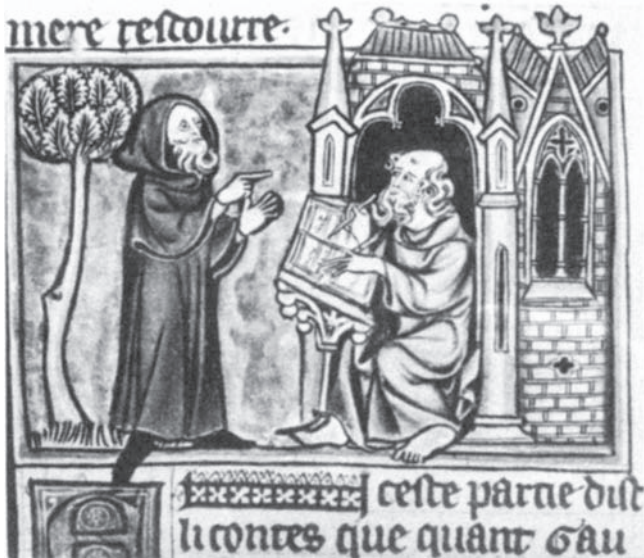 mere rescourre.
ceste partie dist
li contes que quant Gau